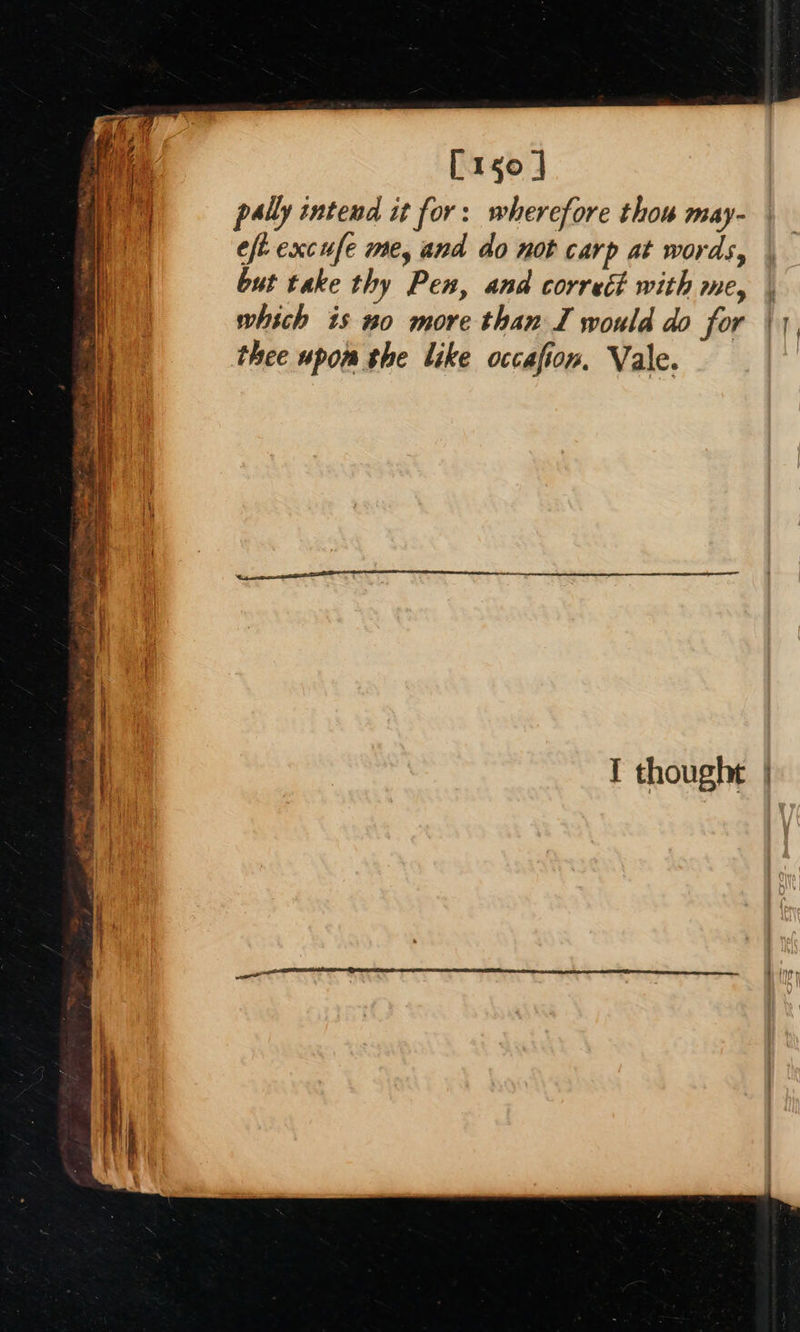 [150]
pally intend it for: wherefore thou may-
eſt excuſe me, and do not carp at words,
but take thy Pen, and correct with me,
which is no more than I would do for
thee upon the like occaſion. Vale.
I thought